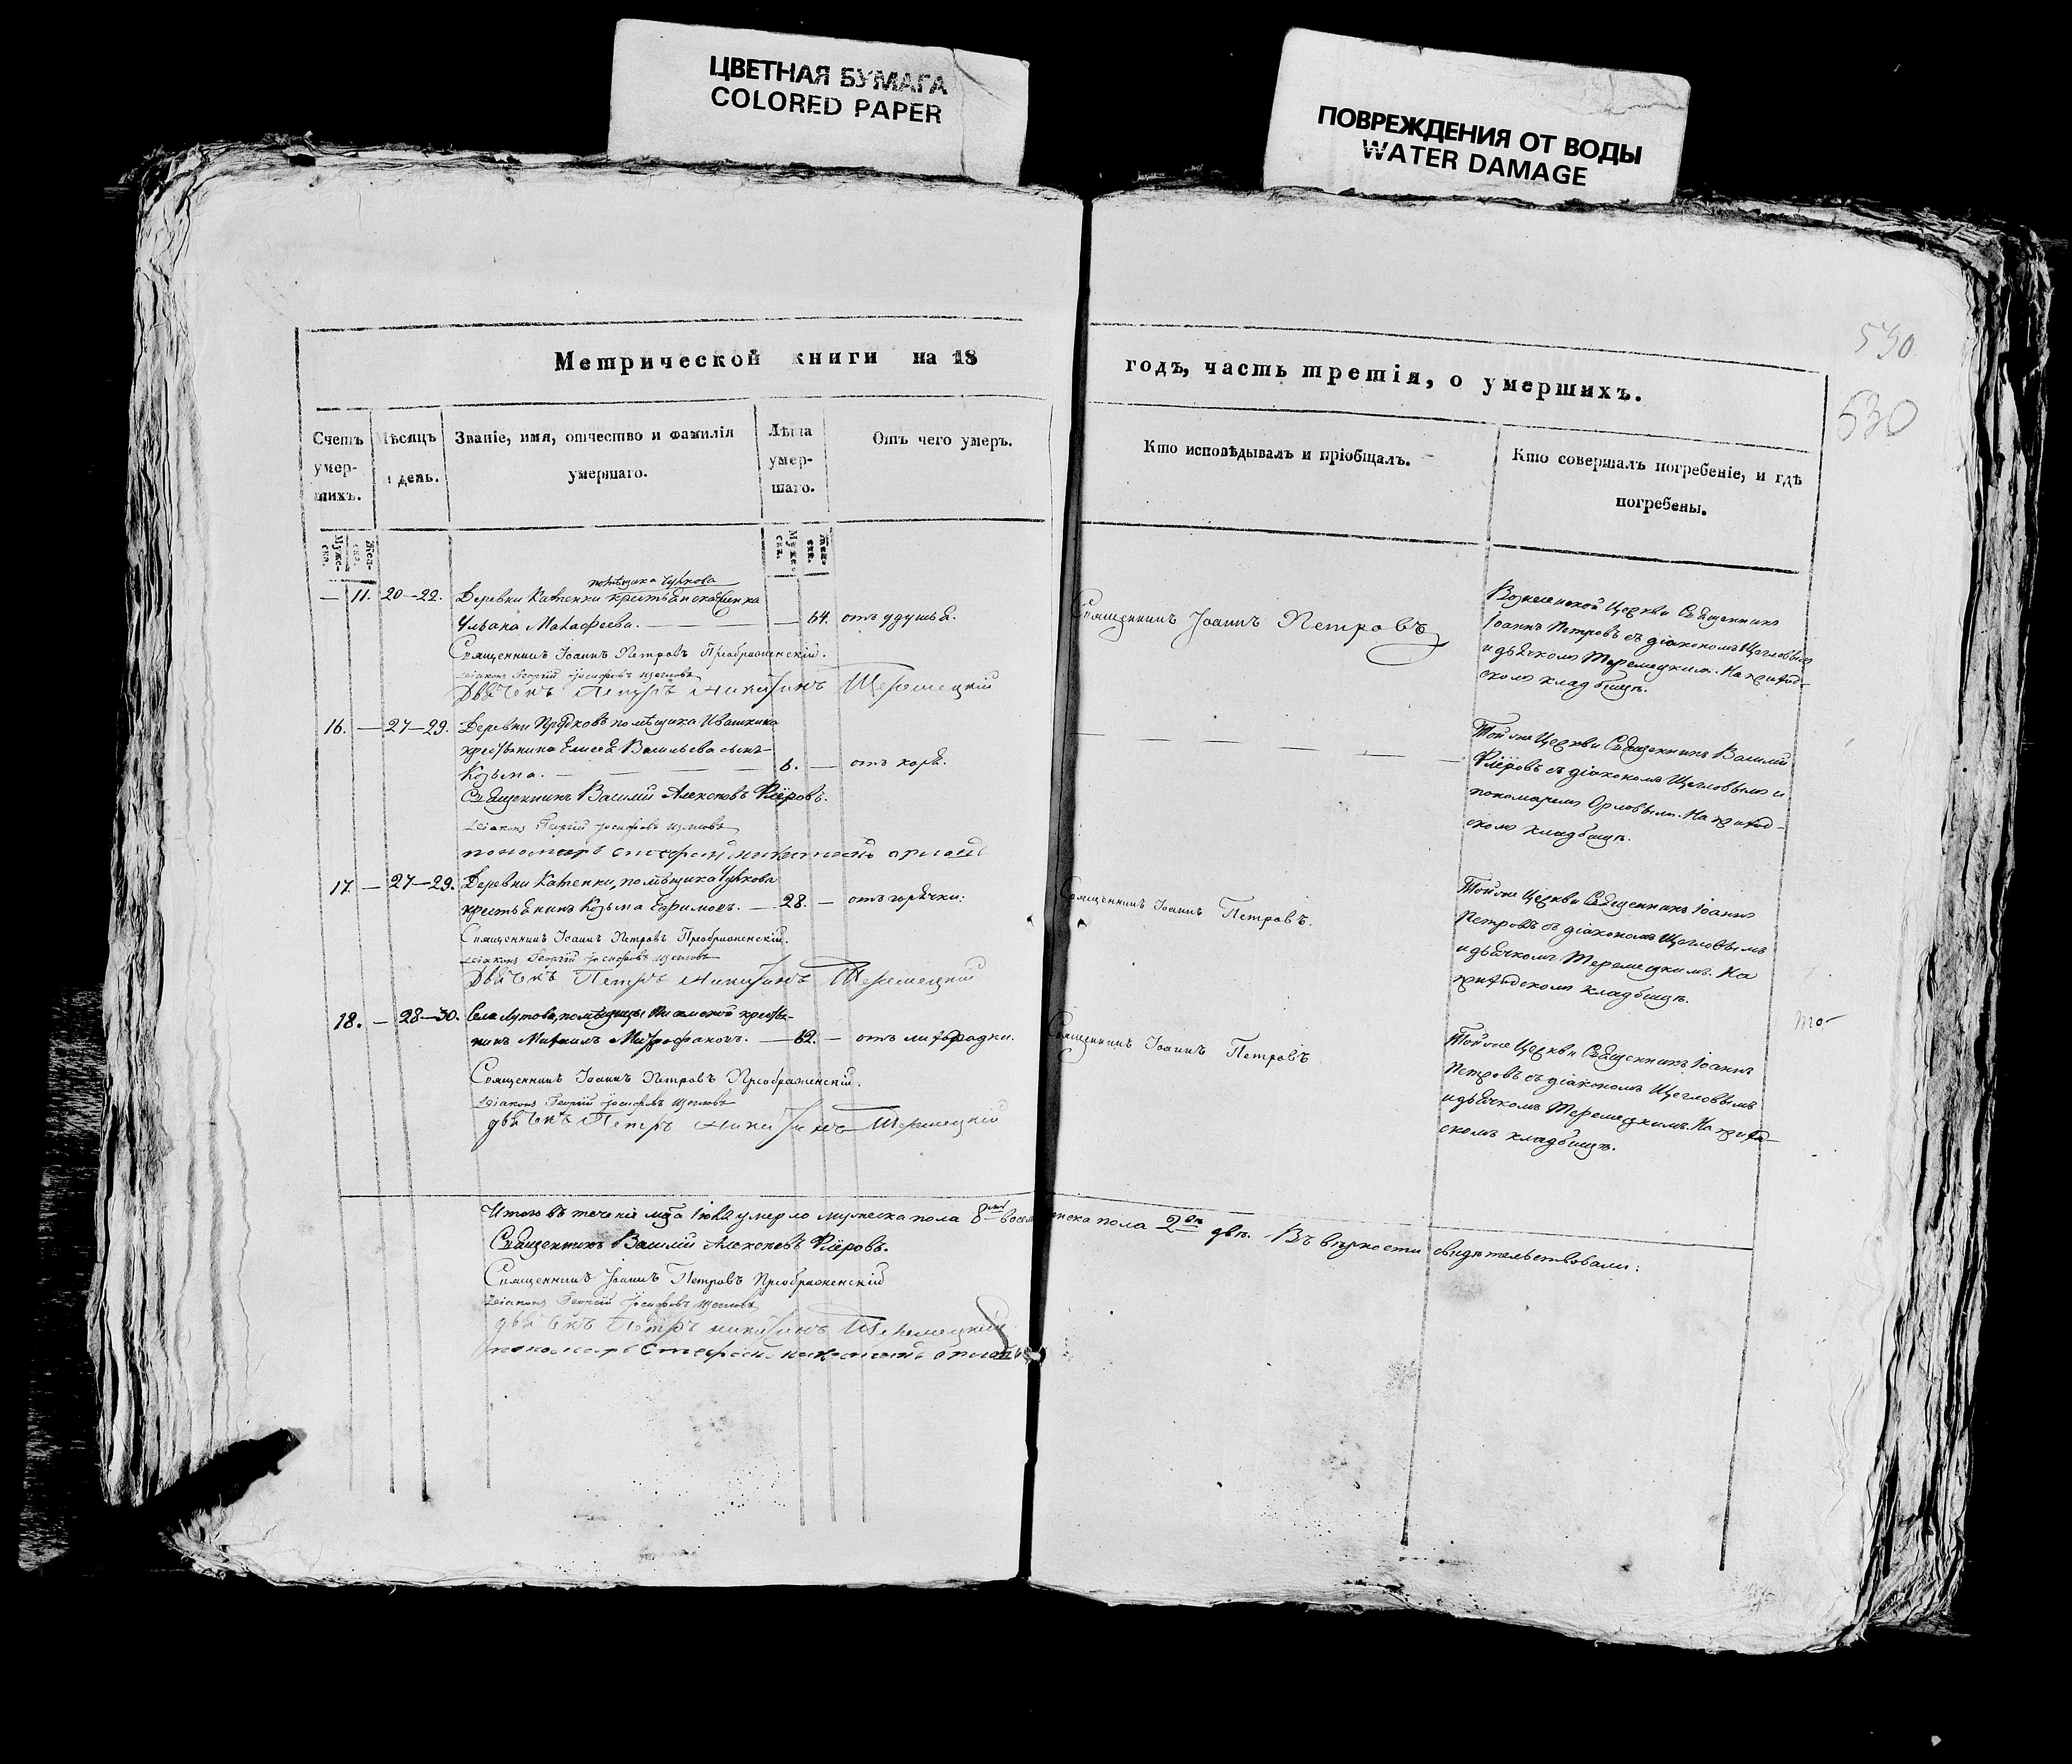 ЦВЕТНАЯ БУМАГА
COLORED PAPER
ПОВРЕЖДЕНИЯ ОТ ВОДЫ
WATER DAMAGE
530
530
Метрической книги на 18
годъ, часть третія, о умершихъ.
Счетъ умер-шихъ.
Мѣсяцъ и день.
Званіе, имя, отчество и фамилія умершаго.
Лѣта умер-шаго.
Отъ чего умеръ.
Кто исповѣдывалъ и пріобщалъ.
Кто совершалъ погребеніе, и гдѣ погребены.
Муже-ска.
Жен-ска.
Муже-ска.
Жен-ска.
помѣщика Чулкова
— 11. 20—22. Деревни Каменки крестьянская
Ульяна Малафеева. — 64. отъ удушья.
Священникъ Іоаннъ Петровъ
Вознесенской Церкви Священникъ
Іоаннъ Петровъ съ діакономъ Щегловымъ
и дьячкомъ Теремецкимъ. На приход-
скомъ кладбищѣ.
Священникъ Іоаннъ Петровъ Преображенскій.
Діаконъ Георгій Іосифовъ Щегловъ
Дьячекъ Петръ Никитинъ Теремецкій
16. — 27—29. Деревни Прудковъ помѣщика Ивашкина
крестьянина Елисея Васильева сынъ
Козьма. — 6. — отъ кори.
Тойже Церкви Священникъ Василій
Флёровъ съ діакономъ Щегловымъ и
пономаремъ Орловымъ. На приход-
скомъ кладбищѣ.
Священникъ Василій Алексѣевъ Флёровъ.
Діаконъ Георгій Іосифовъ Щегловъ
пономарь Стефанъ
17. — 27—29. Деревни Каменки, помѣщика Чулкова
крестьянинъ Козьма Ефимовъ. — 28. — отъ горячки.
Священникъ Іоаннъ Петровъ.
Тойже Церкви Священникъ Іоаннъ
Петровъ съ діакономъ Щегловымъ
и дьячкомъ Теремецкимъ. На
приходскомъ кладбищѣ.
Священникъ Іоаннъ Петровъ Преображенскій.
Діаконъ Георгій Іосифовъ Щегловъ
Дьячекъ Петръ Никитинъ Теремецкій
18. — 28—30. Села Лутова, помѣщицы крестья-
нинъ Митрофановъ. — 62. — отъ лихорадки.
Священникъ Іоаннъ Петровъ
Тойже Церкви Священникъ Іоаннъ
Петровъ съ діакономъ Щегловымъ
и дьячкомъ Теремецкимъ. На приход-
скомъ кладбищѣ.
Священникъ Іоаннъ Петровъ Преображенскій.
Діаконъ Георгій Іосифовъ Щегловъ
дьячекъ Петръ Никитинъ Теремецкій
Итого въ теченіе м-ца Іюля умерло мужеска пола 8 женска пола 2 двѣ. Въ вѣрности свидѣтельствовали:
Священникъ Василій Алексѣевъ Флёровъ.
Священникъ Іоаннъ Петровъ Преображенскій
Діаконъ Георгій Іосифовъ Щегловъ
дьячекъ Петръ Никитинъ Теремецкій
пономарь Стефанъ